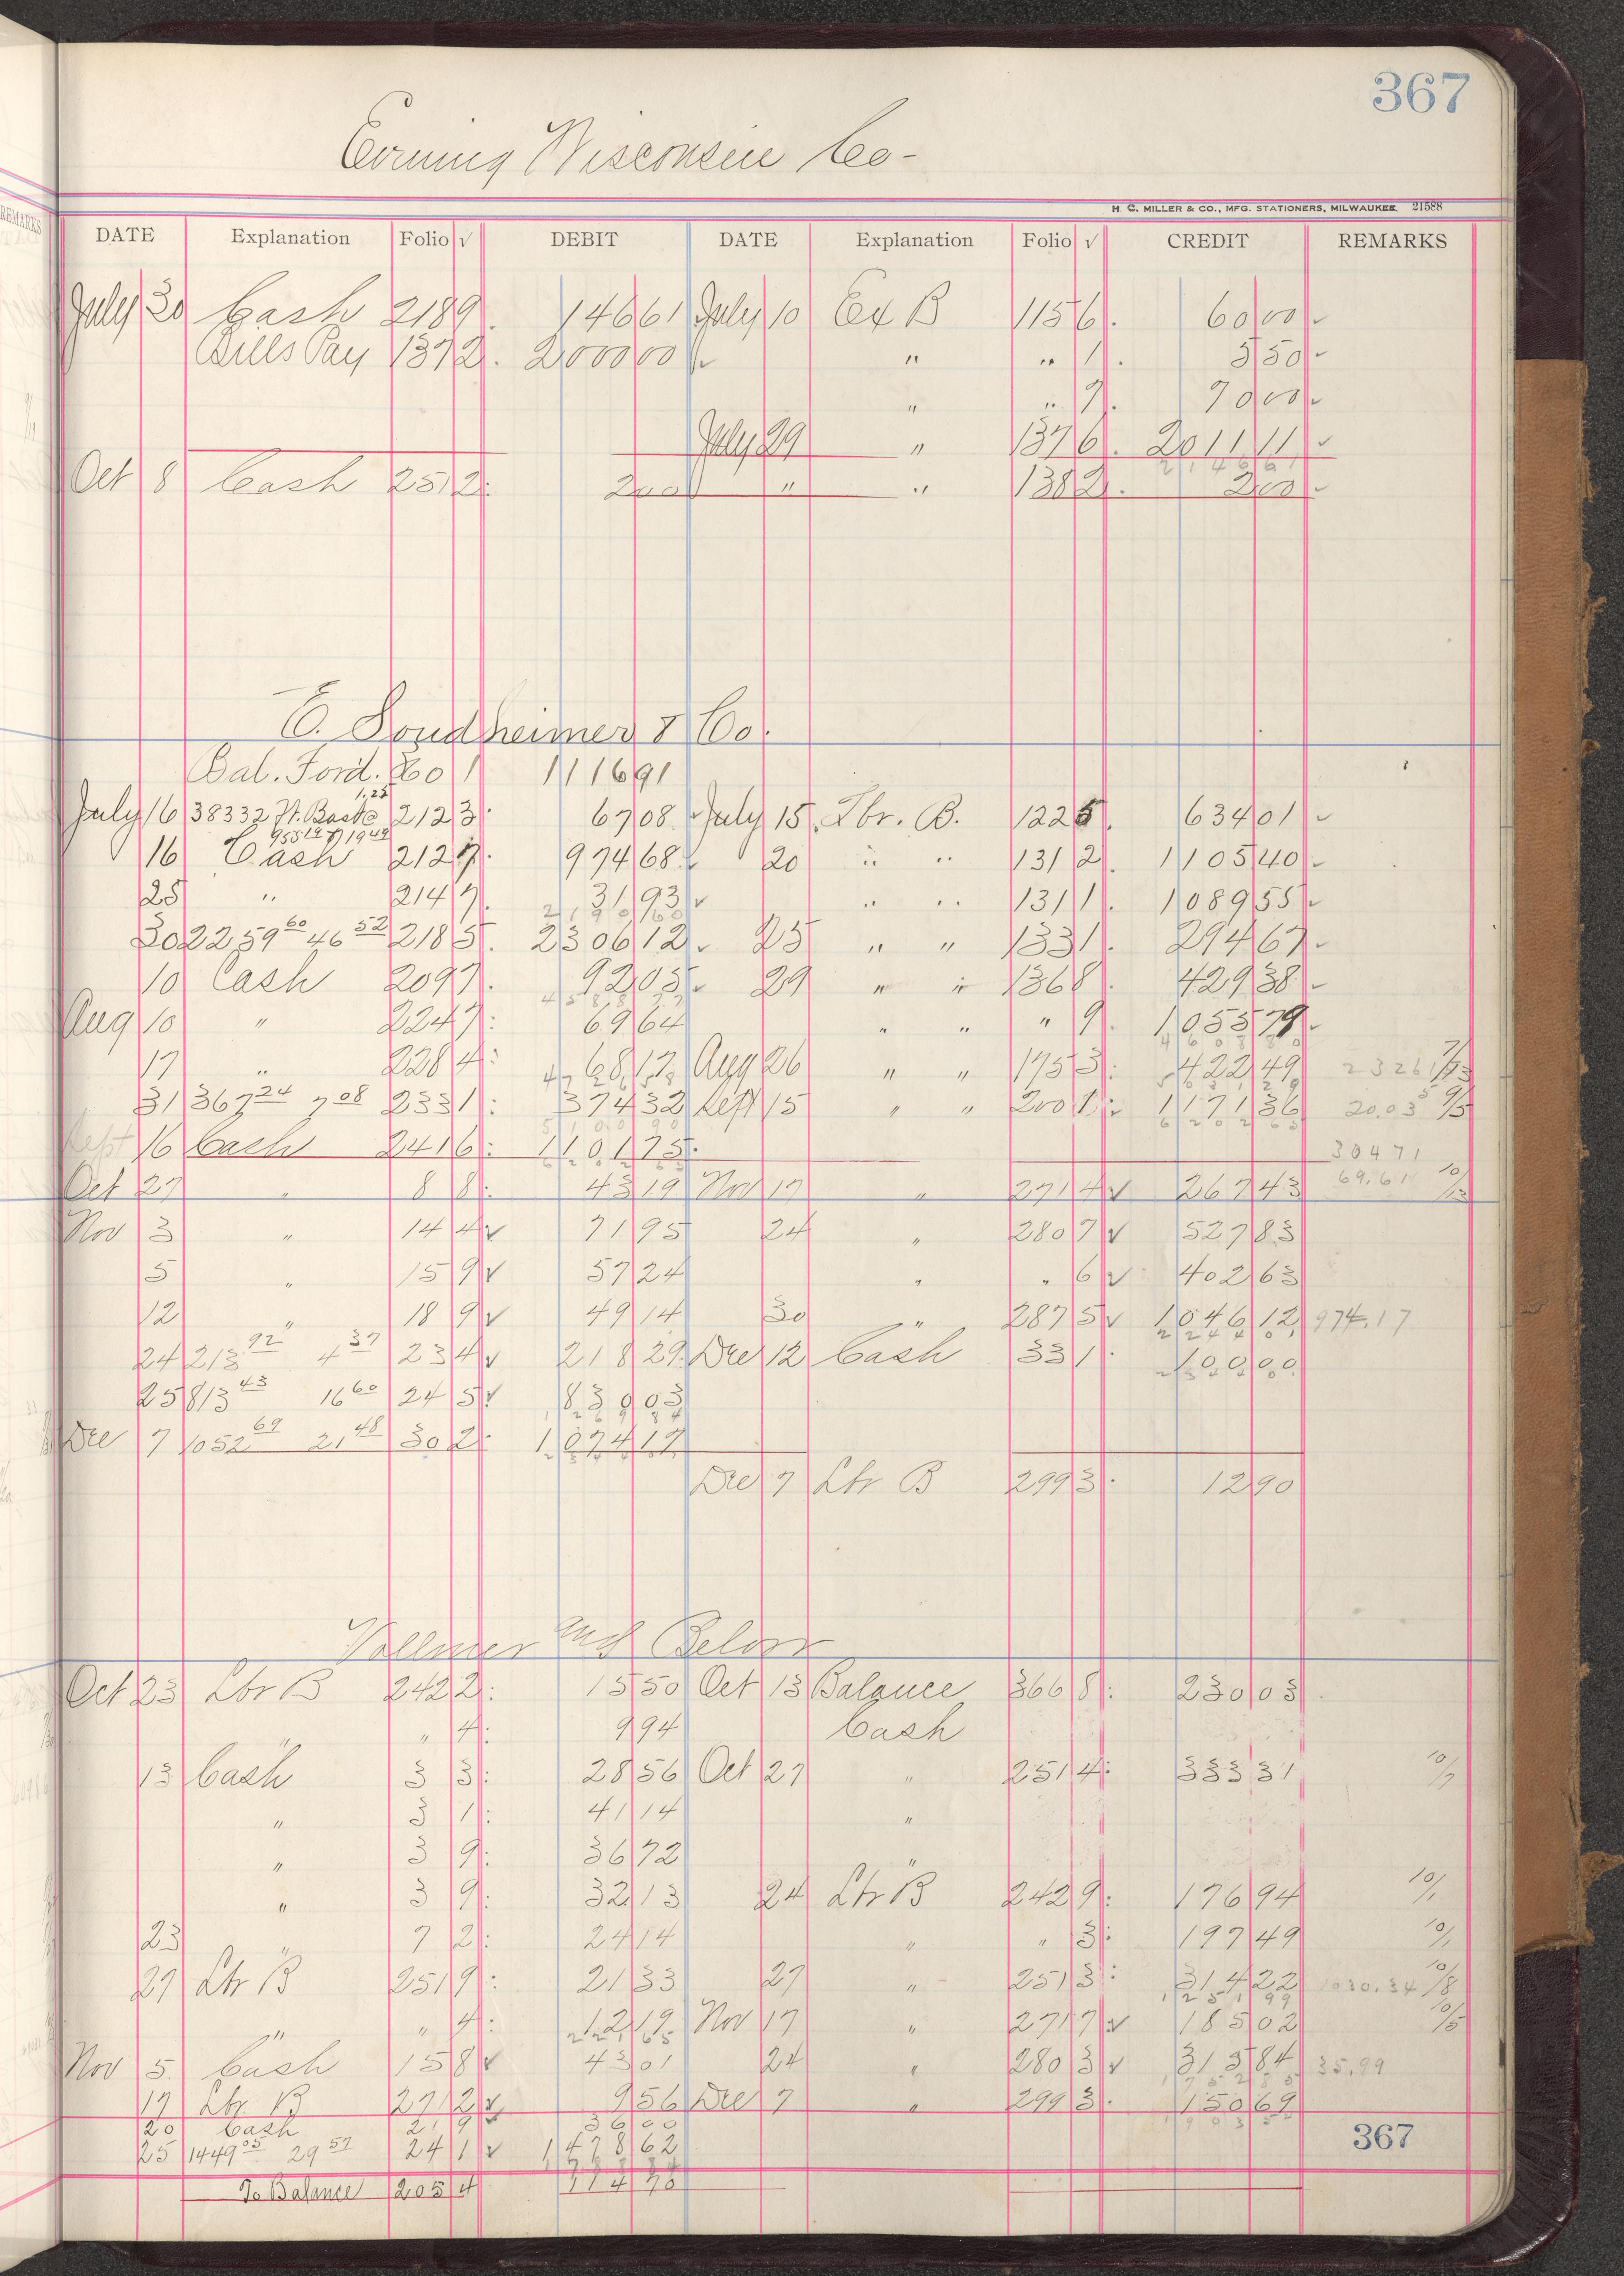 367
Evening Wisconsin Co-
H. C. MILLER & CO., MFG. STATIONERS, MILWAUKEE. 21588
REMARKS
DATE Explanation Folio √ DEBIT DATE Explanation Folio √ CREDIT REMARKS
July 30 Cash 218 9. 146 61 July 10 Ex B 115 6. 60 00 ✓
Bills Pay 137 2. 2000 00 ✓ " " 1. 5 50 ✓
" " 7. 70 00 ✓
July 29 " 137 6. 2011 11 ✓
2146 61
Oct 8 Cash 251 2: 2 00 " " 138 2. 2 00 ✓
E. Sondheimer & Co.
Bal. Ford. 60 1 1116 91
1.25
July 16 38332 Ft. Basto 212 3: 67 08 ✓ July 15 Lbr. B. 122 5. 634 01 ✓
955 19 19 49
16 Cash 212 7: 974 68 ✓ 20 " " 131 2. 1105 40 ✓
25 " 214 7. 31 93 ✓ " " 131 1. 1089 55 ✓
2190 60
30 2259 60 46 52 218 5. 2306 12 ✓ 25 " " 133 1. 294 67 ✓
10 Cash 209 7. 92 05 ✓ 29 " " 136 8. 429 38 ✓
4588 77
Aug 10 " 224 7: 69 64 " " " 9. 1055 79 ✓
4608 80
17 " 228 4: 68 17 Aug 26 " " 175 3: 422 49 23261 7/13
5031 29
31 367 24 7 08 233 1: 374 32 Sept 15 " " 200 1: 1171 36 20.03 9/5
5100 90 6202 65
Sept 16 Cash 241 6: 1101 75. 30471
6202 65
Oct 27 " 8 8: 43 19 Nov 17 " 271 4 ✓ 267 43 69.61 10/13
Nov 3 " 14 4 ✓ 71 95 24 " 280 7 ✓ 527 83
5 " 15 9 ✓ 57 24 " " 6 ✓ 402 63
12 " 18 9 ✓ 49 14 30 " 287 5 ✓ 1046 12 974.17
2244 01
24 213 92 4 37 23 4 ✓ 218 29. Dec 12 Cash 33 1: 100 00
2344 01
25 813 43 16 60 24 5 ✓ 830 03
1269 84
Dec 7 1052 69 21 48 30 2: 1074 17
Dec 7 Lbr B 299 3: 12 90
Vollmer and Below
Oct 23 Lbr B 242 2: 15 50 Oct 13 Balance 366 8: 230 03
" " 4: 9 94 Cash
13 Cash 3 3: 28 56 Oct 27 " 251 4: 333 31 10/7
" 3 1: 41 14 "
" 3 9: 36 72 "
" 3 9: 32 13 24 Lbr B 242 9: 176 94 10/1
23 " 7 2: 24 14 " " 3: 197 49 10/1
27 Lbr B 251 9: 21 33 27 " 251 3: 314 22 1030.34 10/8
1251 99
" " 4: 12 19 Nov 17 " 271 7 ✓ 185 02 10/5
221 65
Nov 5. Cash 15 8 ✓ 43 01 24 " 280 3 ✓ 315 84 35.99
17 Lbr B 271 2 ✓ 9 56 Dec 7 " 299 3: 150 69
20 Cash 2 9 ✓ 36 00
367
25 1449 05 29 57 24 1 ✓ 1478 62
To Balance 205 4 114 70